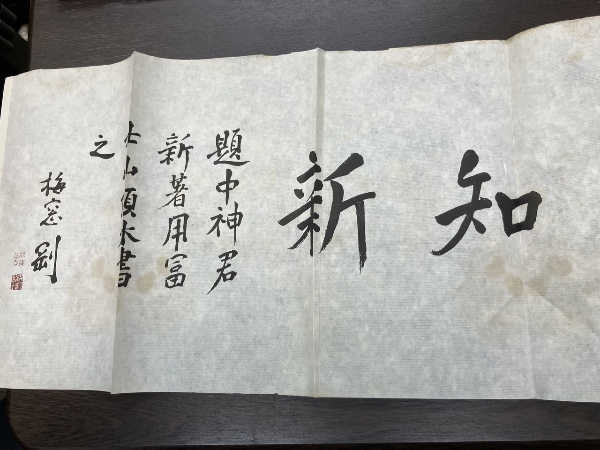 知新
題中神君
新著用冨
士山頂水書
之
梅窓 剛